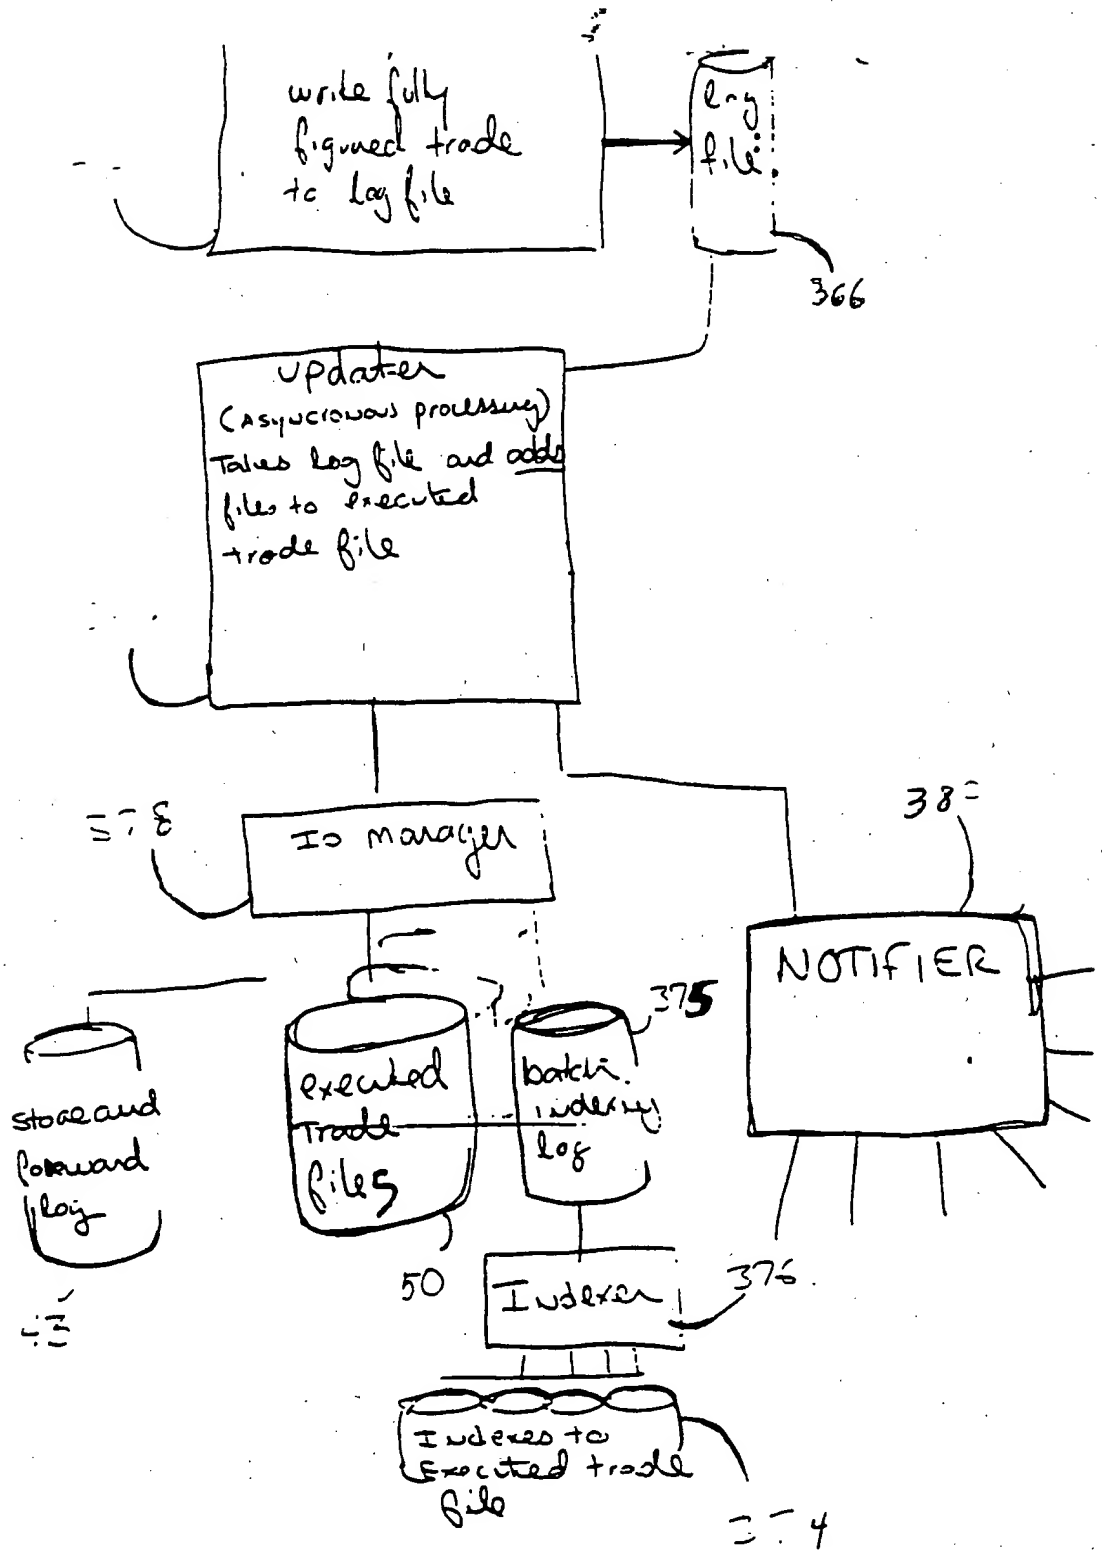 write fully
figured trade
to log file
log
file
366
updater
(Asyncronous processing)
Takes log file and adds
files to executed
trade file
IO manager
NOTIFIER
375
store and
forward
log
executed
trade
files
batch
indexing
log
50
Indexer
376
Indexes to
Executed trade
file